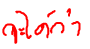 จะได้กว่า